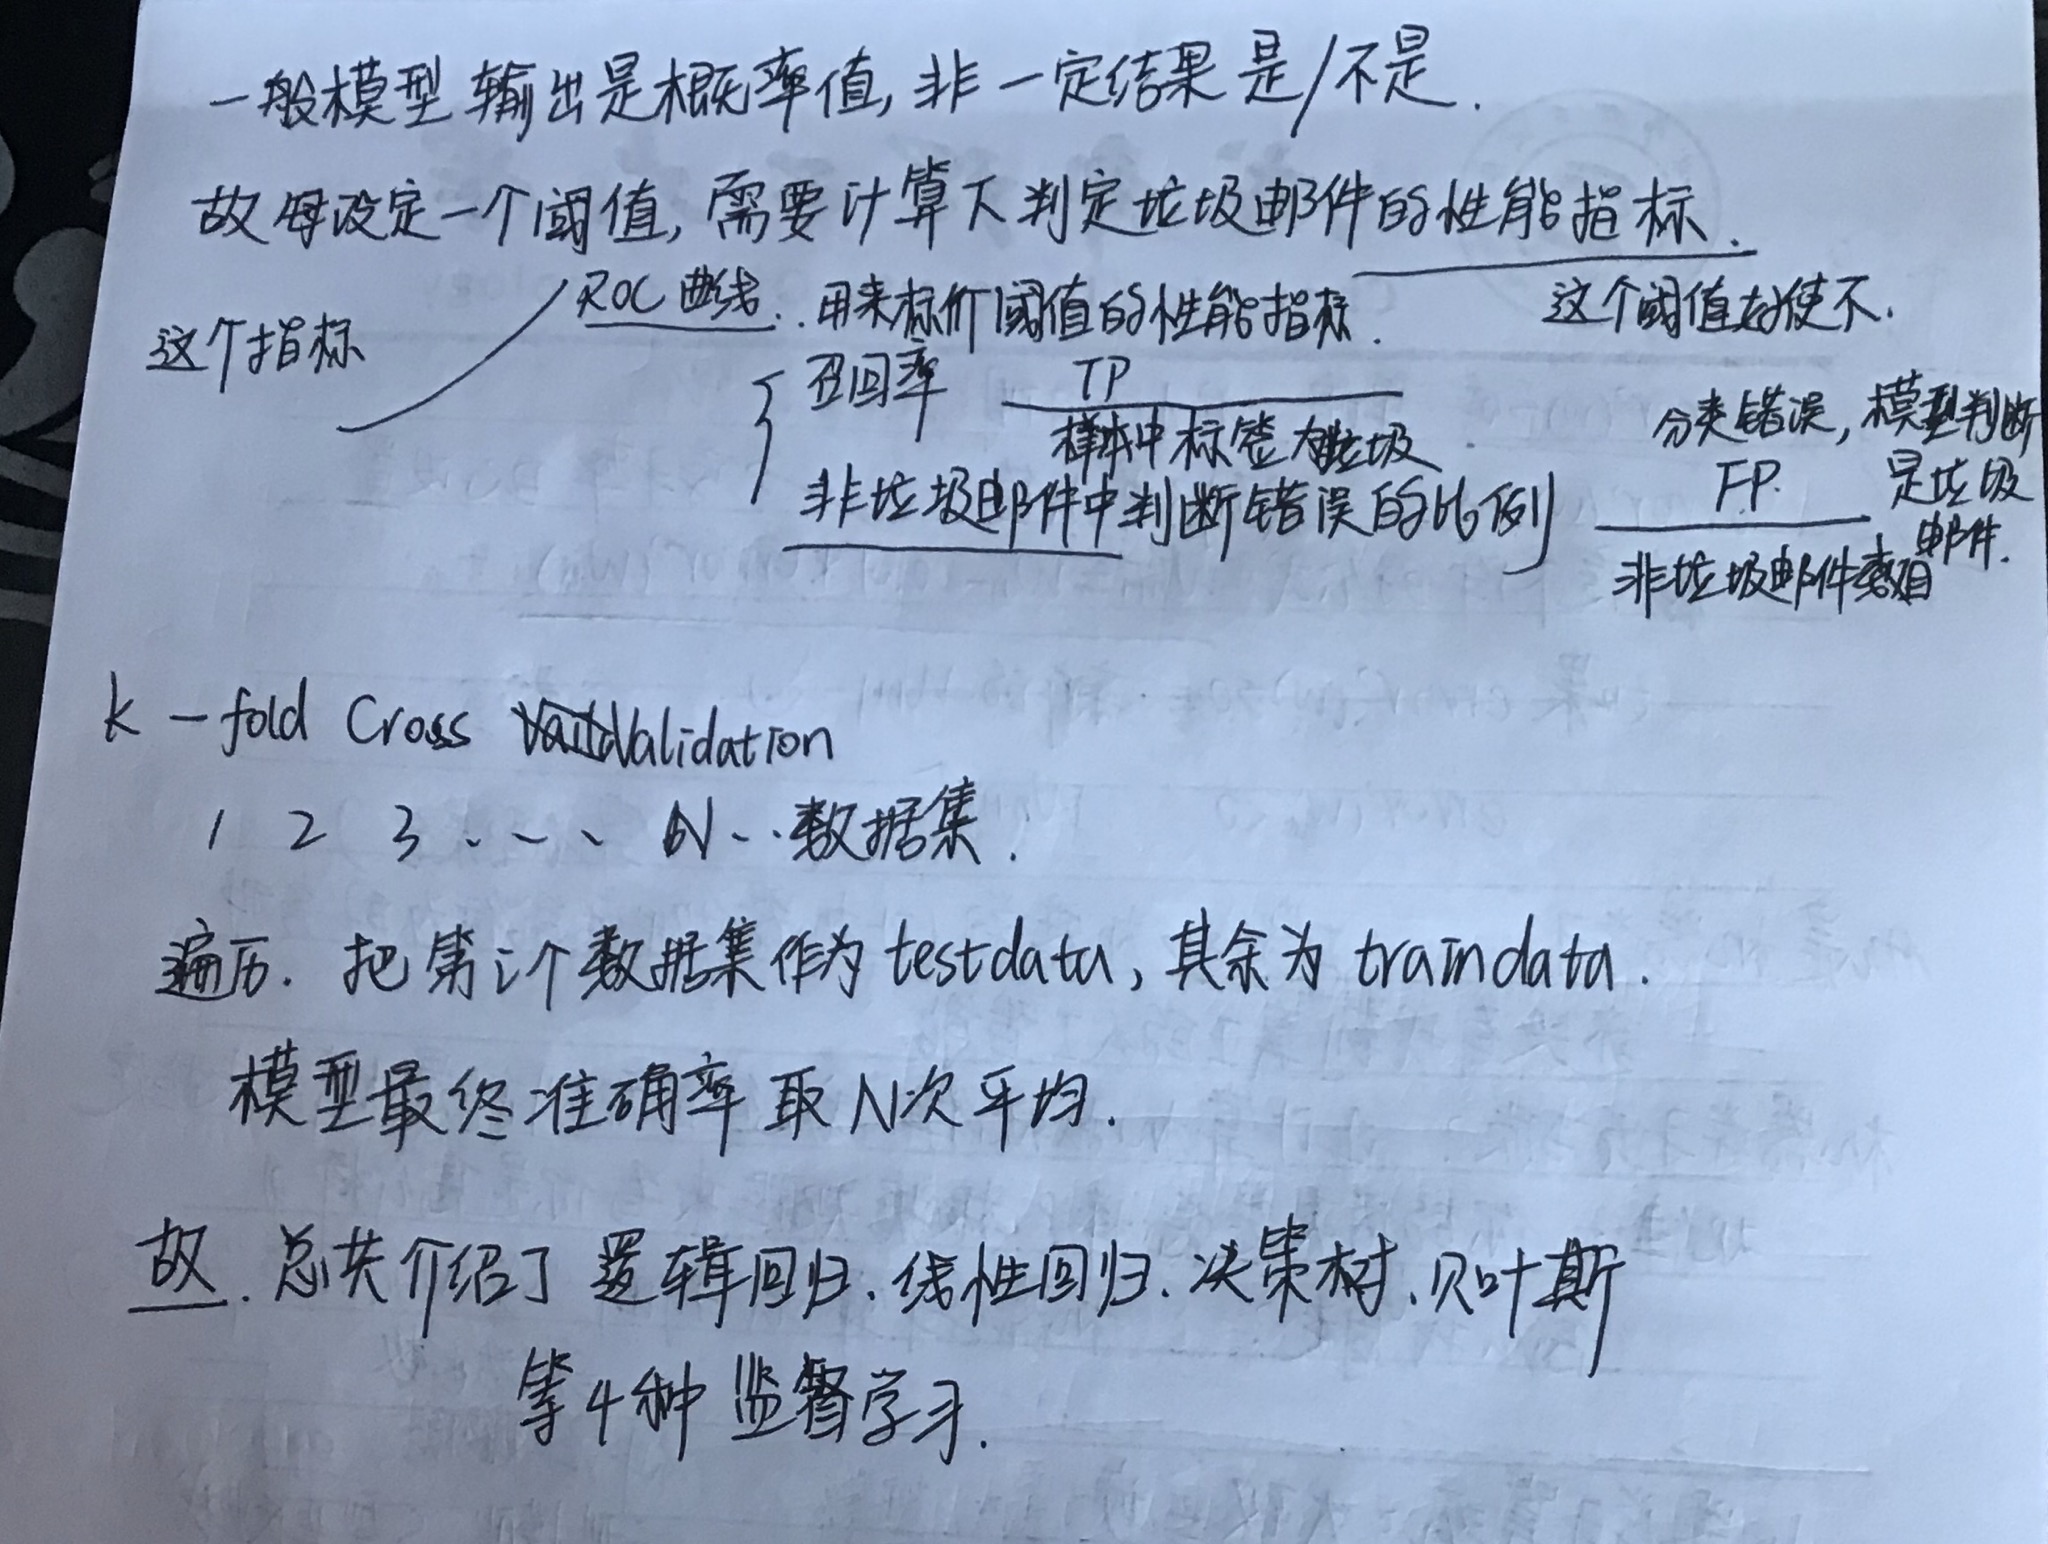 一般模型输出是概率值,非一定结果是/不是.
故每设定一个阈值,需要计算下判定垃圾邮件的性能指标.
这个指标
ROC曲线..用来标价阈值的性能指标.
这个阈值好使不.
召回率 TP
样本中标签为垃圾
非垃圾邮件中判断错误的比例
FP.
非垃圾邮件数目
分类错误,模型判断
是垃圾
邮件.
k-fold Cross Validation
1 2 3 . . . N..数据集.
遍历. 把第i个数据集作为testdata,其余为traindata.
模型最终准确率取N次平均.
故.总共介绍了逻辑回归.线性回归.决策树.贝叶斯
等4种监督学习.